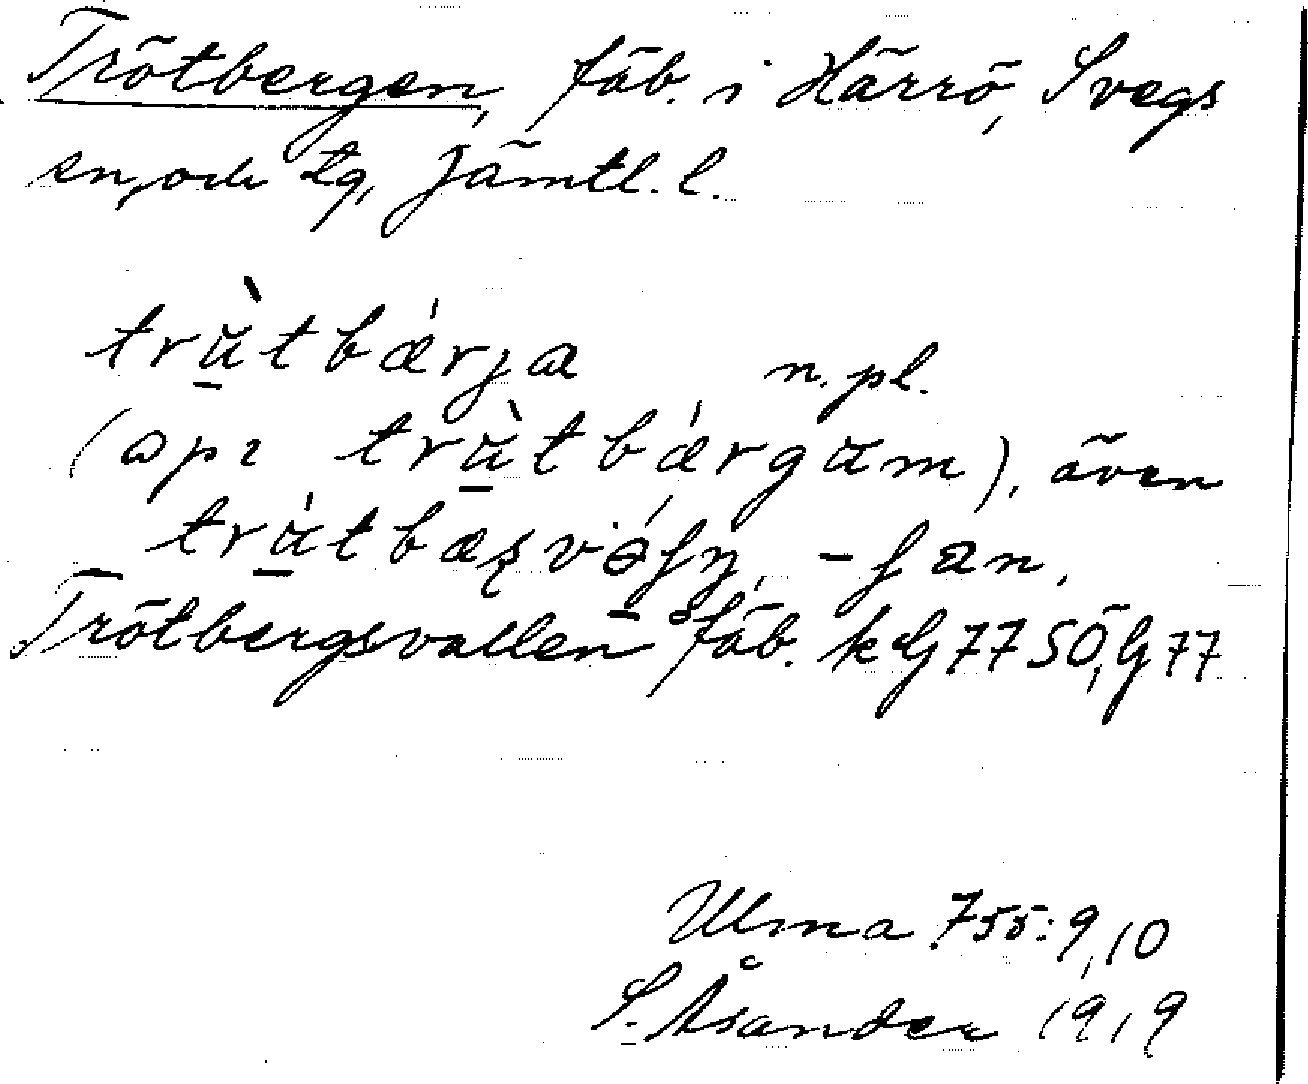 Trötbergen, fäb. i Härrö, Svegs
sn, och tg, Jämtl. l.
trùtbǽrja n. pl.
(apr trùtbǽrgam), även
-fan.
Trötbergsvallen fäb. kG 77 SÖ, G 77
Ulma 755: 9, 10
S. Åsander 1919